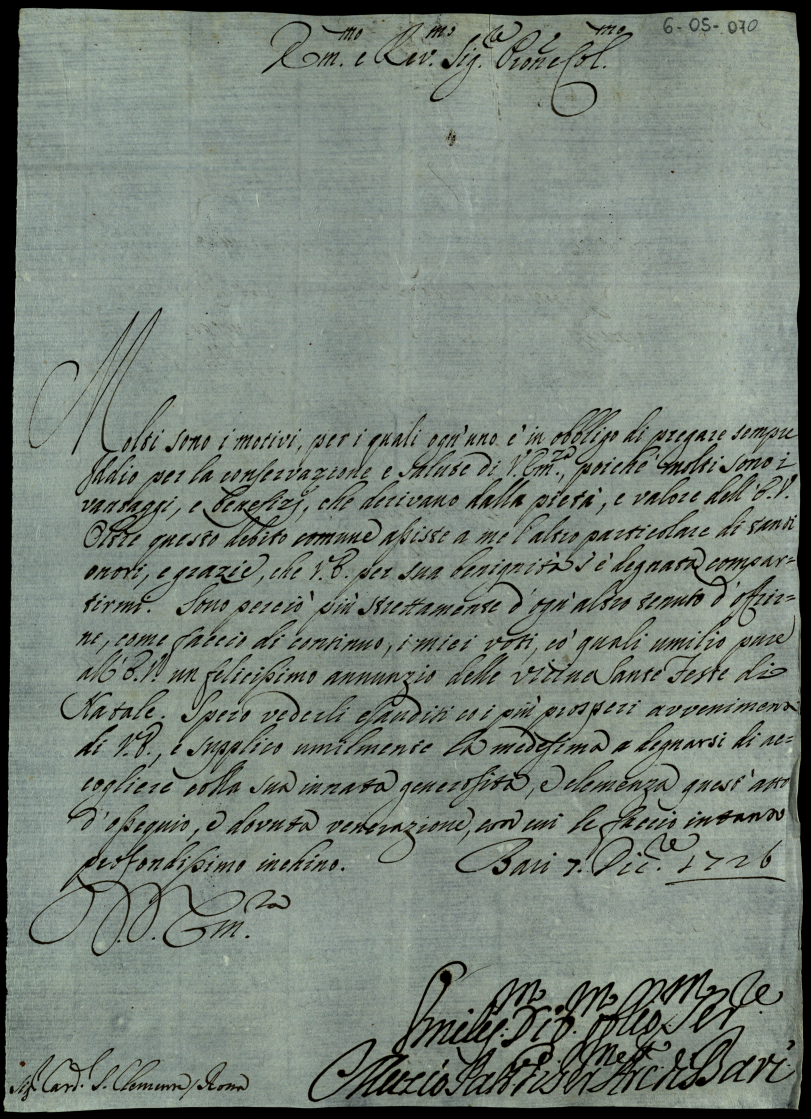 6-05-070
Em.mo e Rev.mo Sig.re P̃rone Col.mo
Molti sono i motivi, per i quali ogn'uno è in obbligo di pregare sempre
Iddio per la conservazione e salute di V. Em.za, poichè molti sono i
vantaggi, e benefizj, che derivano dalla pietà, e valore dell'E.V.
Oltre questo debito comune assiste a me l'altro particolare di tanti
onori, e grazie, che V.E. per sua benignità s'è degnata compar-
tirmi. Sono perciò più strettamente d'ogn'altro tenuto d'offrir-
ne, come faccio di continuo, i miei voti, co' quali umilio pure
all'E.V. un felicissimo annunzio delle vicine Sante Feste di
Natale. Spero vederli esauditi co i più prosperi avvenimenti
di V.E., e supplico umilmente la medesima a degnarsi di ac-
cogliere colla sua innata generosità, e clemenza quest'atto
d'ossequio, e dovuta venerazione, con cui le faccio intanto
profondissimo inchino. Bari 7. Dic.re 1726
D.V. Em.za
Umiliss.mo Div.mo Obbl.mo Ser.re
Muzio Arc. di Bari
Sig. Card. S. Clemente / Roma